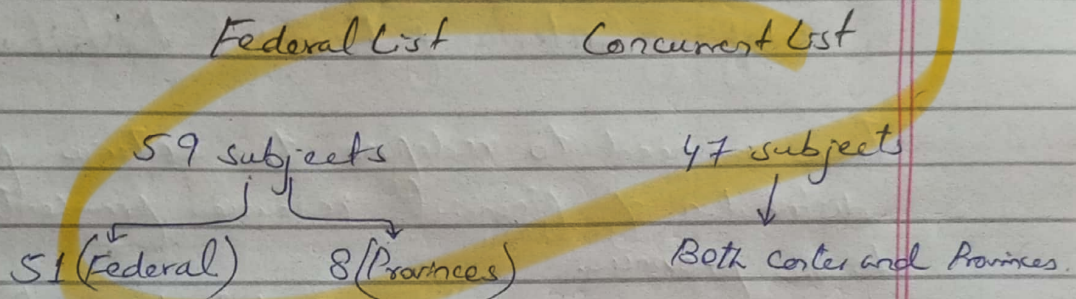 Federal List Concurrent List
59 subjects 47 subjects
51 (Federal) 8 (Provinces) Both center and Provinces.